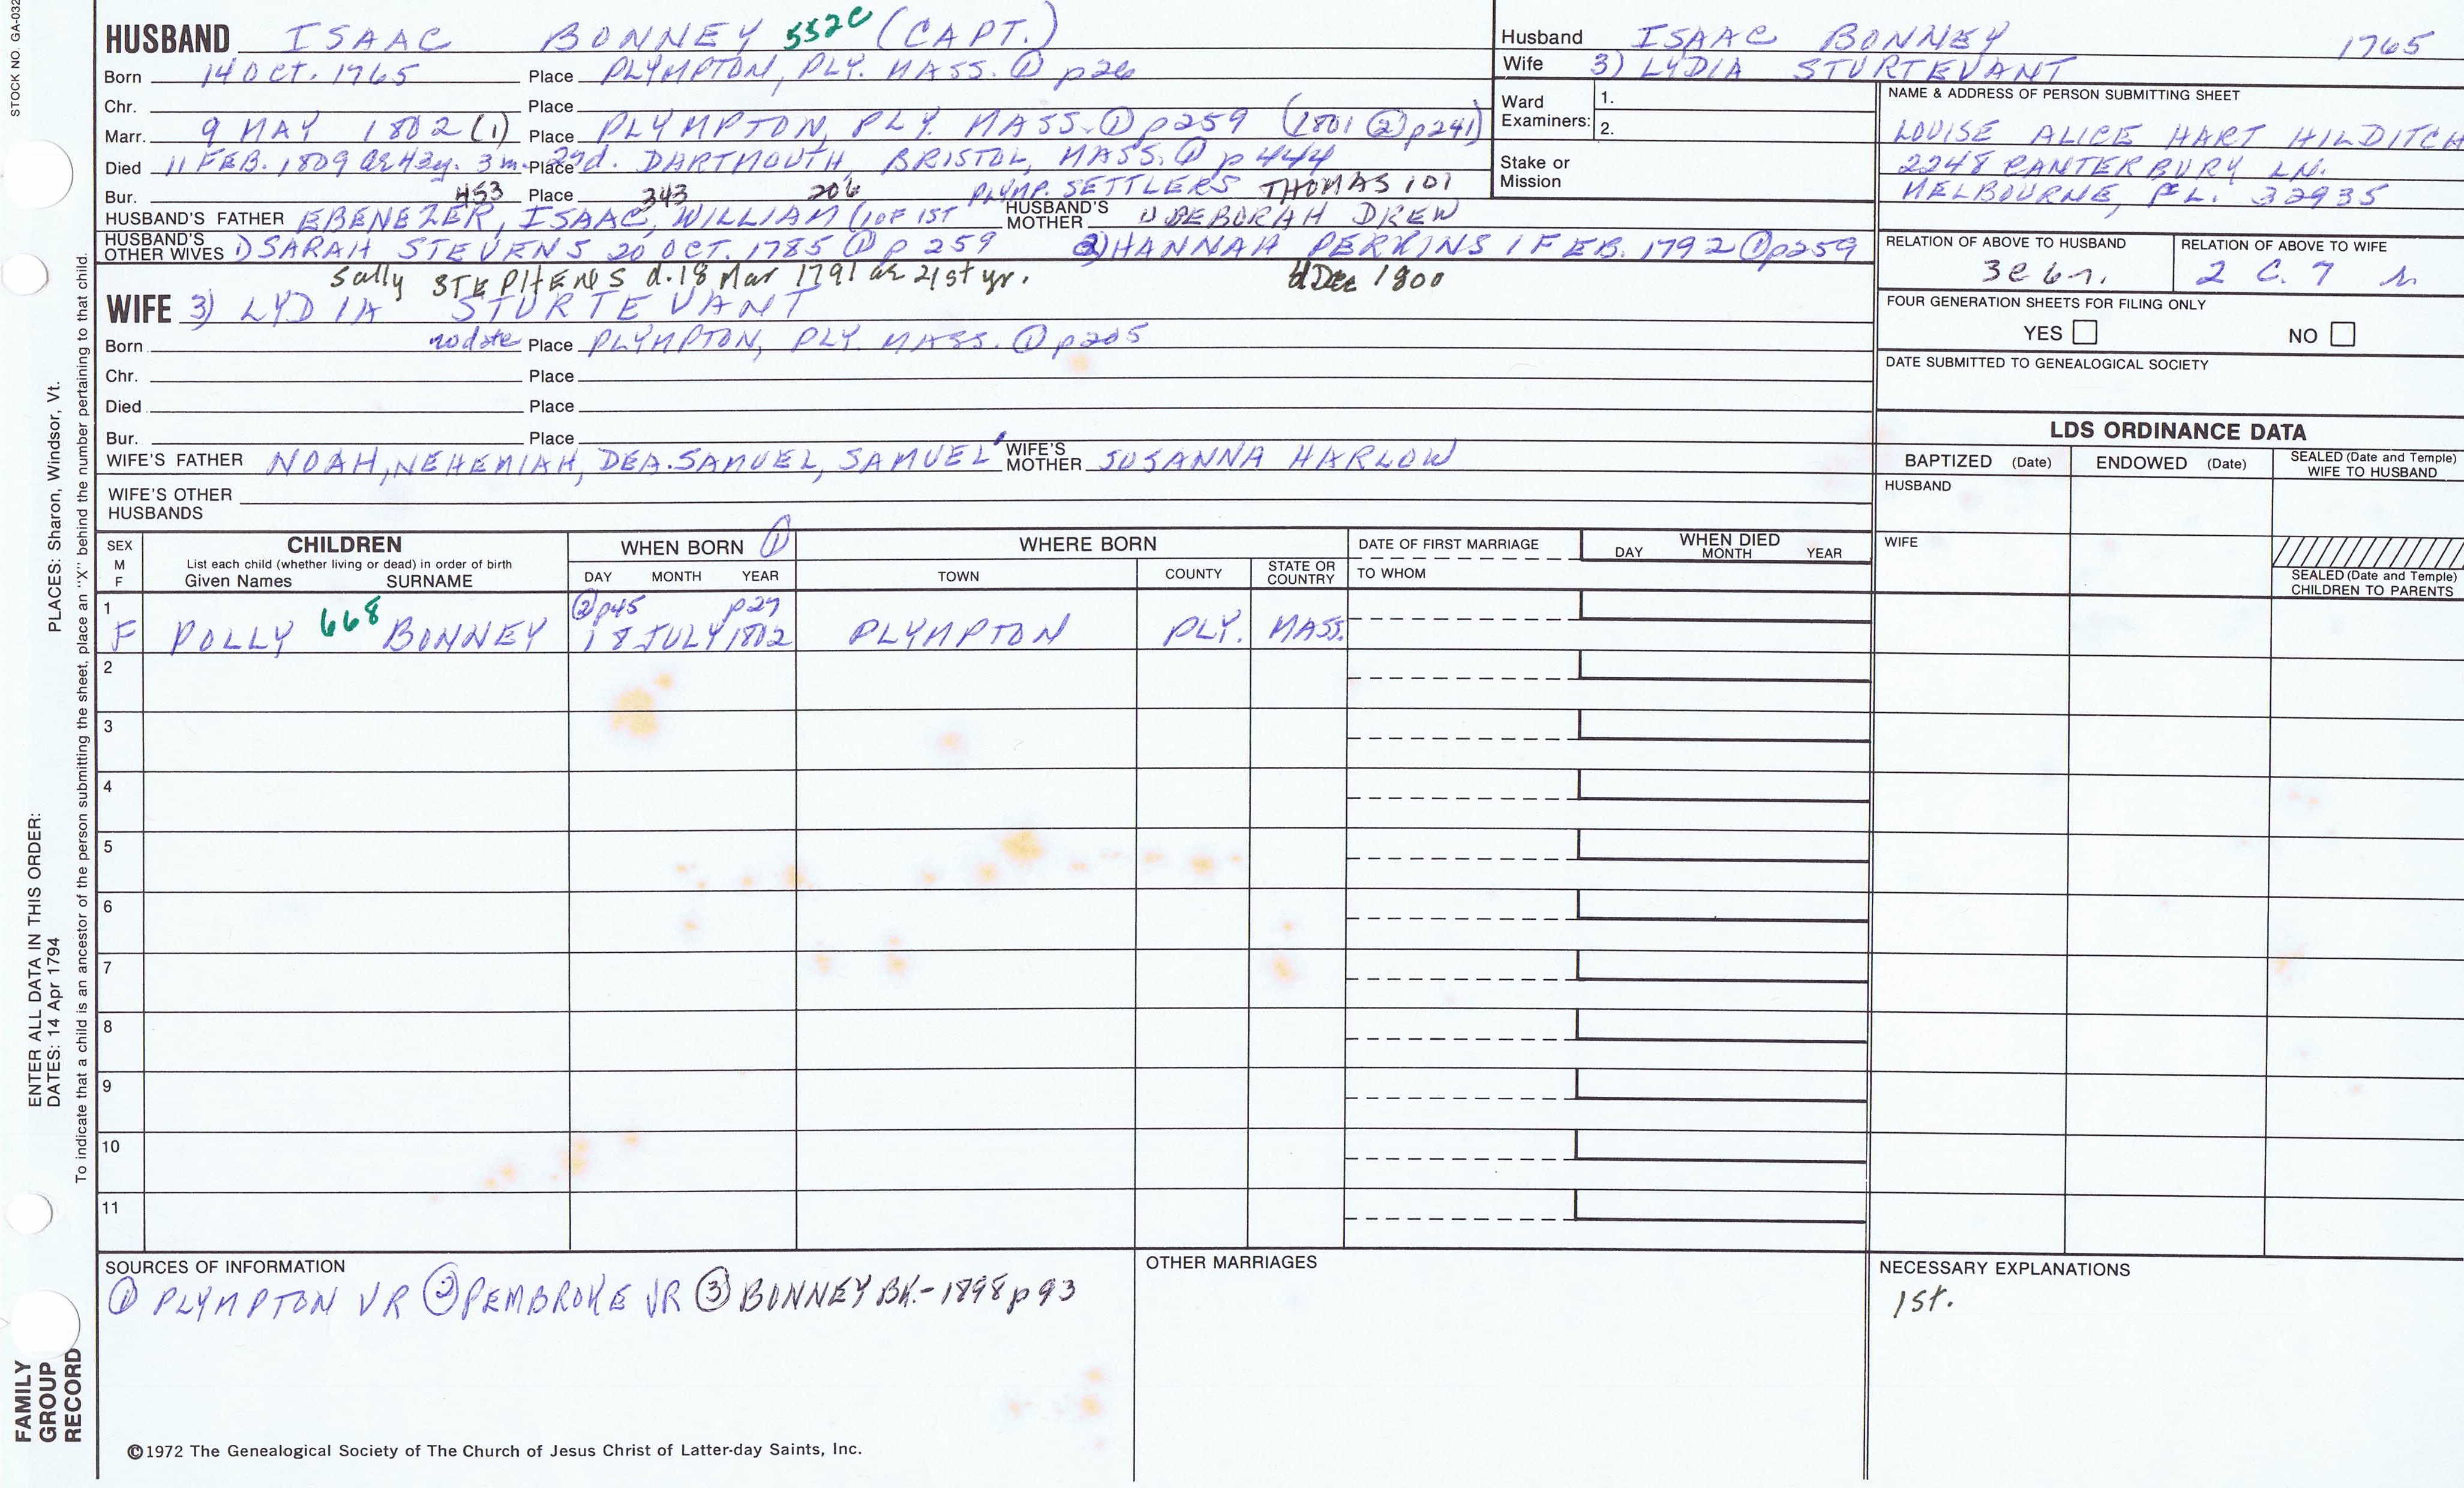 STOCK NO. GA-032
HUSBAND ISAAC BONNEY 552C (CAPT.)
Born 14 OCT. 1765 Place PLYMPTON, PLY. MASS. ① p26
Chr. Place
Marr. 9 MAY 1802 (1) Place PLYMPTON, PLY. MASS. ① p259 (1801 ② p241)
Died 11 FEB. 1809 ae 43y. 3 m. 27d. Place DARTMOUTH, BRISTOL, MASS. ① p444
Bur. 453 Place 343 206 PLYMP. SETTLERS THOMAS 101
HUSBAND'S FATHER EBENEZER, ISAAC, WILLIAM (1 OF 1ST HUSBAND'S MOTHER DEBORAH DREW
HUSBAND'S OTHER WIVES 1) SARAH STEVENS 20 OCT. 1785 ① p 259 2) HANNAH PERKINS 1 FEB. 1792 ① p259
Sally STEPHENS d. 18 Mar 1791 ae 21st yr. d Dec 1800
WIFE 3) LYDIA STURTEVANT
Born no date Place PLYMPTON, PLY. MASS. ① p205
Chr. Place
Died Place
Bur. Place
WIFE'S FATHER NOAH, NEHEMIAH, DEA. SAMUEL, SAMUEL WIFE'S MOTHER SUSANNA HARLOW
WIFE'S OTHER HUSBANDS
Husband ISAAC BONNEY 1765
Wife 3) LYDIA STURTEVANT
Ward Examiners: 1.
2.
Stake or Mission
NAME & ADDRESS OF PERSON SUBMITTING SHEET
LOUISE ALICE HART HILDITCH
2248 CANTERBURY LN.
MELBOURNE, FL. 32935
RELATION OF ABOVE TO HUSBAND RELATION OF ABOVE TO WIFE
3c6r. 2 C. 7 r
FOUR GENERATION SHEETS FOR FILING ONLY
YES NO
DATE SUBMITTED TO GENEALOGICAL SOCIETY
LDS ORDINANCE DATA
BAPTIZED (Date) ENDOWED (Date) SEALED (Date and Temple) WIFE TO HUSBAND
HUSBAND
WIFE
SEALED (Date and Temple) CHILDREN TO PARENTS
SEX M F
CHILDREN
List each child (whether living or dead) in order of birth
Given Names SURNAME
WHEN BORN ①
DAY MONTH YEAR
WHERE BORN
TOWN COUNTY STATE OR COUNTRY
DATE OF FIRST MARRIAGE
TO WHOM
WHEN DIED
DAY MONTH YEAR
1 ② p45 p27
F POLLY 668 BONNEY 18 JULY 1802 PLYMPTON PLY. MASS.
2
3
4
5
6
7
8
9
10
11
SOURCES OF INFORMATION
① PLYMPTON VR ② PEMBROKE VR ③ BONNEY BK.-1898 p93
OTHER MARRIAGES
NECESSARY EXPLANATIONS
1st.
©1972 The Genealogical Society of The Church of Jesus Christ of Latter-day Saints, Inc.
FAMILY GROUP RECORD
ENTER ALL DATA IN THIS ORDER:
DATES: 14 Apr 1794 PLACES: Sharon, Windsor, Vt.
To indicate that a child is an ancestor of the person submitting the sheet, place an "X" behind the number pertaining to that child.